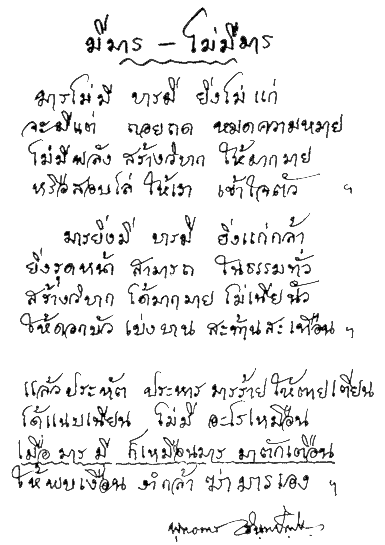 มีมาร – ไม่มีมาร
มารไม่มี บารมี ยิ่งไม่แก่
จะมีแต่ ถอยถด หมดความหมาย
ไม่มีพลัง สร้างวิบาก ให้มากมาย
หรือสอบไล่ ให้เรา เข้าใจตัว ฯ
มารยิ่งมี บารมี ยิ่งแก่กล้า
ยิ่งรุดหน้า สามารถ ในธรรมทั่ว
สร้างวิบาก ได้มากมาย ไม่
ให้ดอกบัว เบ่งบาน สะท้านสะเทือน ฯ
แล้วประหัต ประหาร มารร้ายให้ตายเตียน
ได้แนบเนียน ไม่มี อะไรเหมือน
เมื่อมารมี ก็เหมือนมาร มาตักเตือน
ให้พบเงื่อน งำกล้า ฆ่ามารเอง ฯ
พุทธทาส อินทปัญโญ